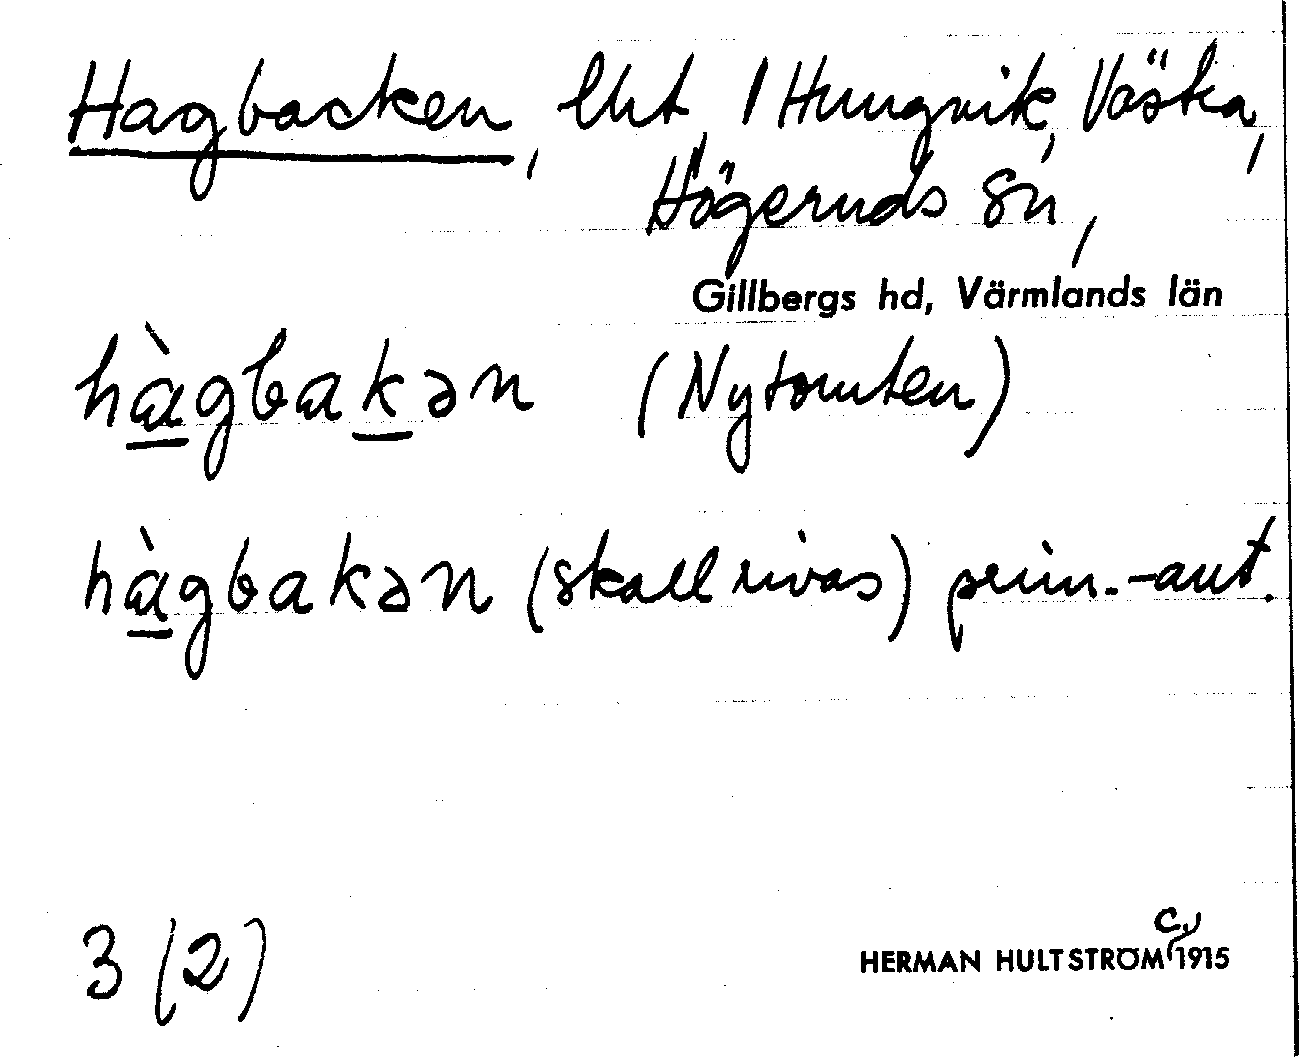 Hagbacken, lht, 1 Hungvik, Västra,
Högeruds sn,
Gillbergs hd, Värmlands län
hàgbakən (Nytomten)
hàgbakən (skall rivas) prim.-ant.
3 (2)
HERMAN HULTSTRÖM c. 1915